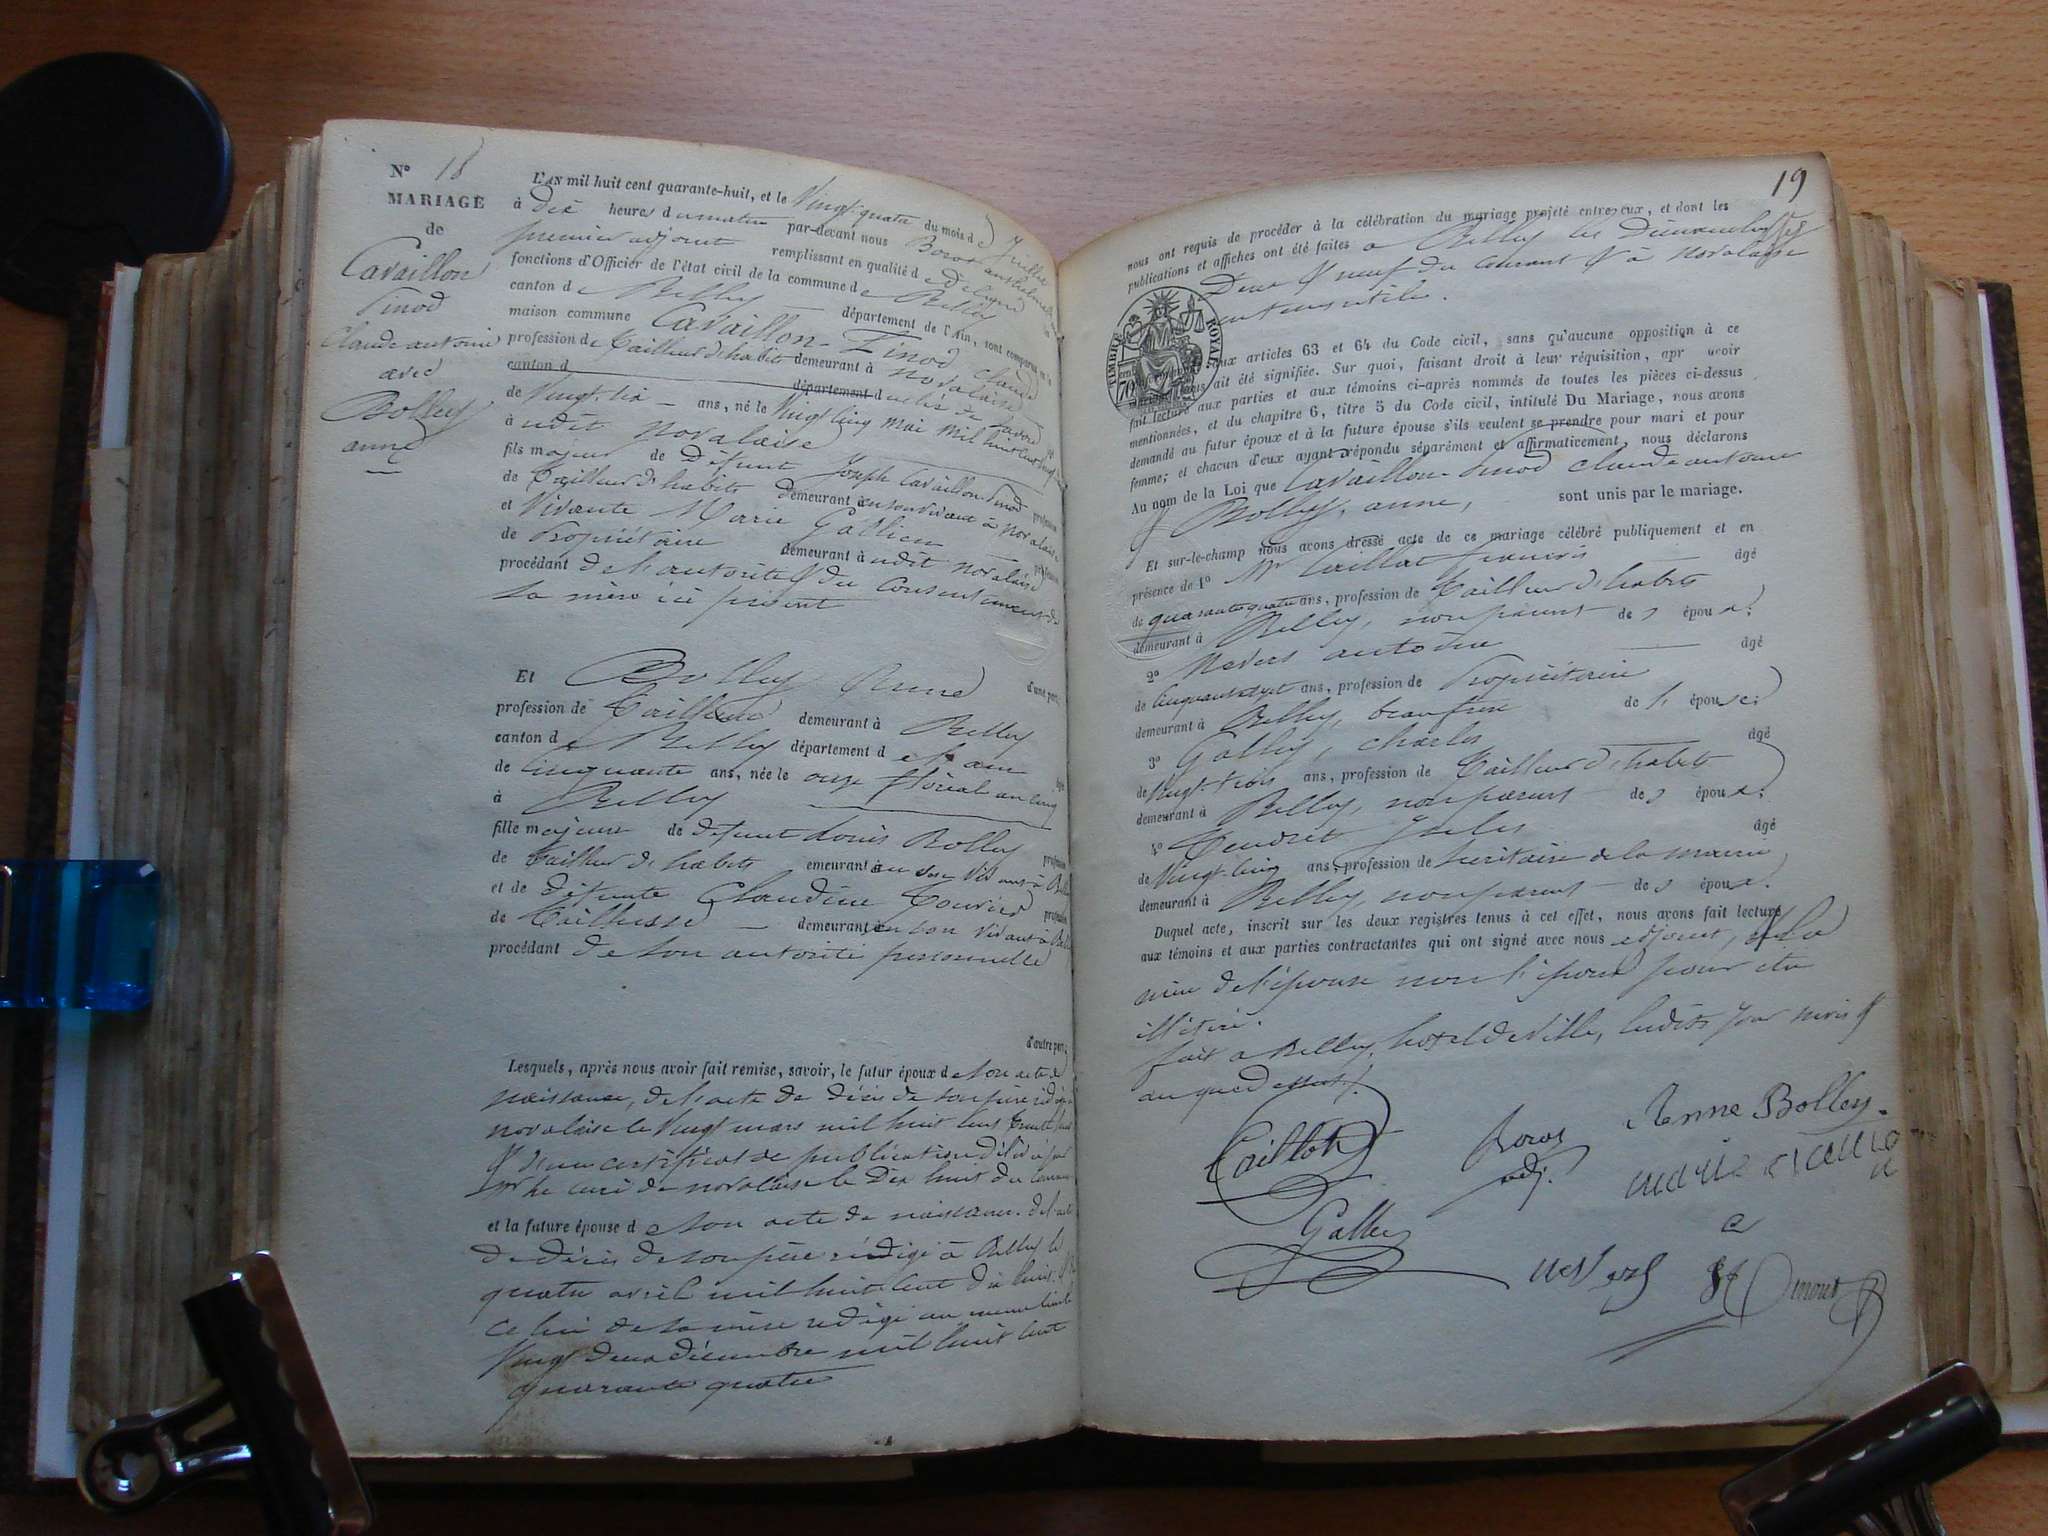 N° 18
MARIAGE
de
Cavaillon
Tinod
Claude antoine
avec
Bolley
anne
L'AN mil huit cent quarante-huit, et le Vingt-quatre du mois de Juillet
à dix heures du matin par-devant nous Borot anthelme
premier adjoint remplissant en qualité de délégué
fonctions d'Officier de l'état civil de la commune de Belley
canton de Belley département de l'Ain, sont comparus en la
maison commune Cavaillon-Tinod Claude
profession de Tailleur d'habits demeurant à Novalaise
canton d département d
de Vingt-six ans, né le Vingt cinq mai mil huit cent
à udit Novalaise
fils majeur de défunt Joseph Cavaillon Tinod profession
de Tailleur d'habits demeurant en son vivant à Novalaise
et Vivante Marie Gallien
de Propriétaire demeurant à udit Novalaise
procédant de l'autorité & du consentement de
sa mère ici présent
d'une part,
Et Bolley Anne
profession de Tailleuse demeurant à Belley
canton de Belley département de l'ain
de cinquante ans, née le onze floréal an cinq
à Belley
fille majeure de défunt Louis Bolley profession
de Tailleur d'habits demeurant en son vivant à Belley
et de défunte Claudine profession
de Tailleuse demeurant en son vivant à Belley
procédant de son autorité personnelle
d'autre part;
Lesquels, après nous avoir fait remise, savoir, le futur époux de son acte de
naissance, de l'acte de décès de son père rédigé à
novalaise le Vingt mars mil huit cent trente
& d'un certificat de publication délivré par
Mr le curé de novalaise le Dix huit du courant
et la future épouse de son acte de naissance. de l'acte
de décès de son père rédigé à Belley le
quatre avril mil huit cent dix huit, &
celui de sa mère rédigé au même lieu le
Vingt deux décembre mil huit cent
quarante quatre
19
nous ont requis de procéder à la célébration du mariage projeté entre eux, et dont les
publications et affiches ont été faites à Belley les Dimanches
Deux & neuf du courant & à Novalaise
en tems utile.
TIMBRE ROYAL
aux articles 63 et 64 du Code civil, sans qu'aucune opposition à ce
ait été signifiée. Sur quoi, faisant droit à leur réquisition, après avoir
fait lecture aux parties et aux témoins ci-après nommés de toutes les pièces ci-dessus
mentionnées, et du chapitre 6, titre 5 du Code civil, intitulé Du Mariage, nous avons
demandé au futur époux et à la future épouse s'ils veulent se prendre pour mari et pour
femme; et chacun d'eux ayant répondu séparément et affirmativement, nous déclarons
Au nom de la Loi que Cavaillon-Tinod claude antoine
& Bolley, anne, sont unis par le mariage.
Et sur-le-champ nous avons dressé acte de ce mariage célébré publiquement et en
présence de 1° Mr Caillot françois âgé
de quarante quatre ans, profession de Tailleur d'habits
demeurant à Belley, non parent des époux:
2° Nevers antoine âgé
de cinquante sept ans, profession de Propriétaire
demeurant à Belley, beau frère de l'épouse:
3° Galley, Charles âgé
de Vingt-trois ans, profession de Tailleur d'habits
demeurant à Belley, non parent des époux:
4° Tendret Jules âgé
de Vingt-cinq ans, profession de Secrétaire de la mairie
demeurant à Belley, non parent des époux.
Duquel acte, inscrit sur les deux registres tenus à cet effet, nous avons fait lecture
aux témoins et aux parties contractantes qui ont signé avec nous adjoint, & la
mère de l'épouse non l'époux pour être
illétéré.
fait à Belley, hotel de Ville, lesdits jour mois &
an que dessus.
Caillot
Borot
adj.
Anne Bolley.
Galley
neVers